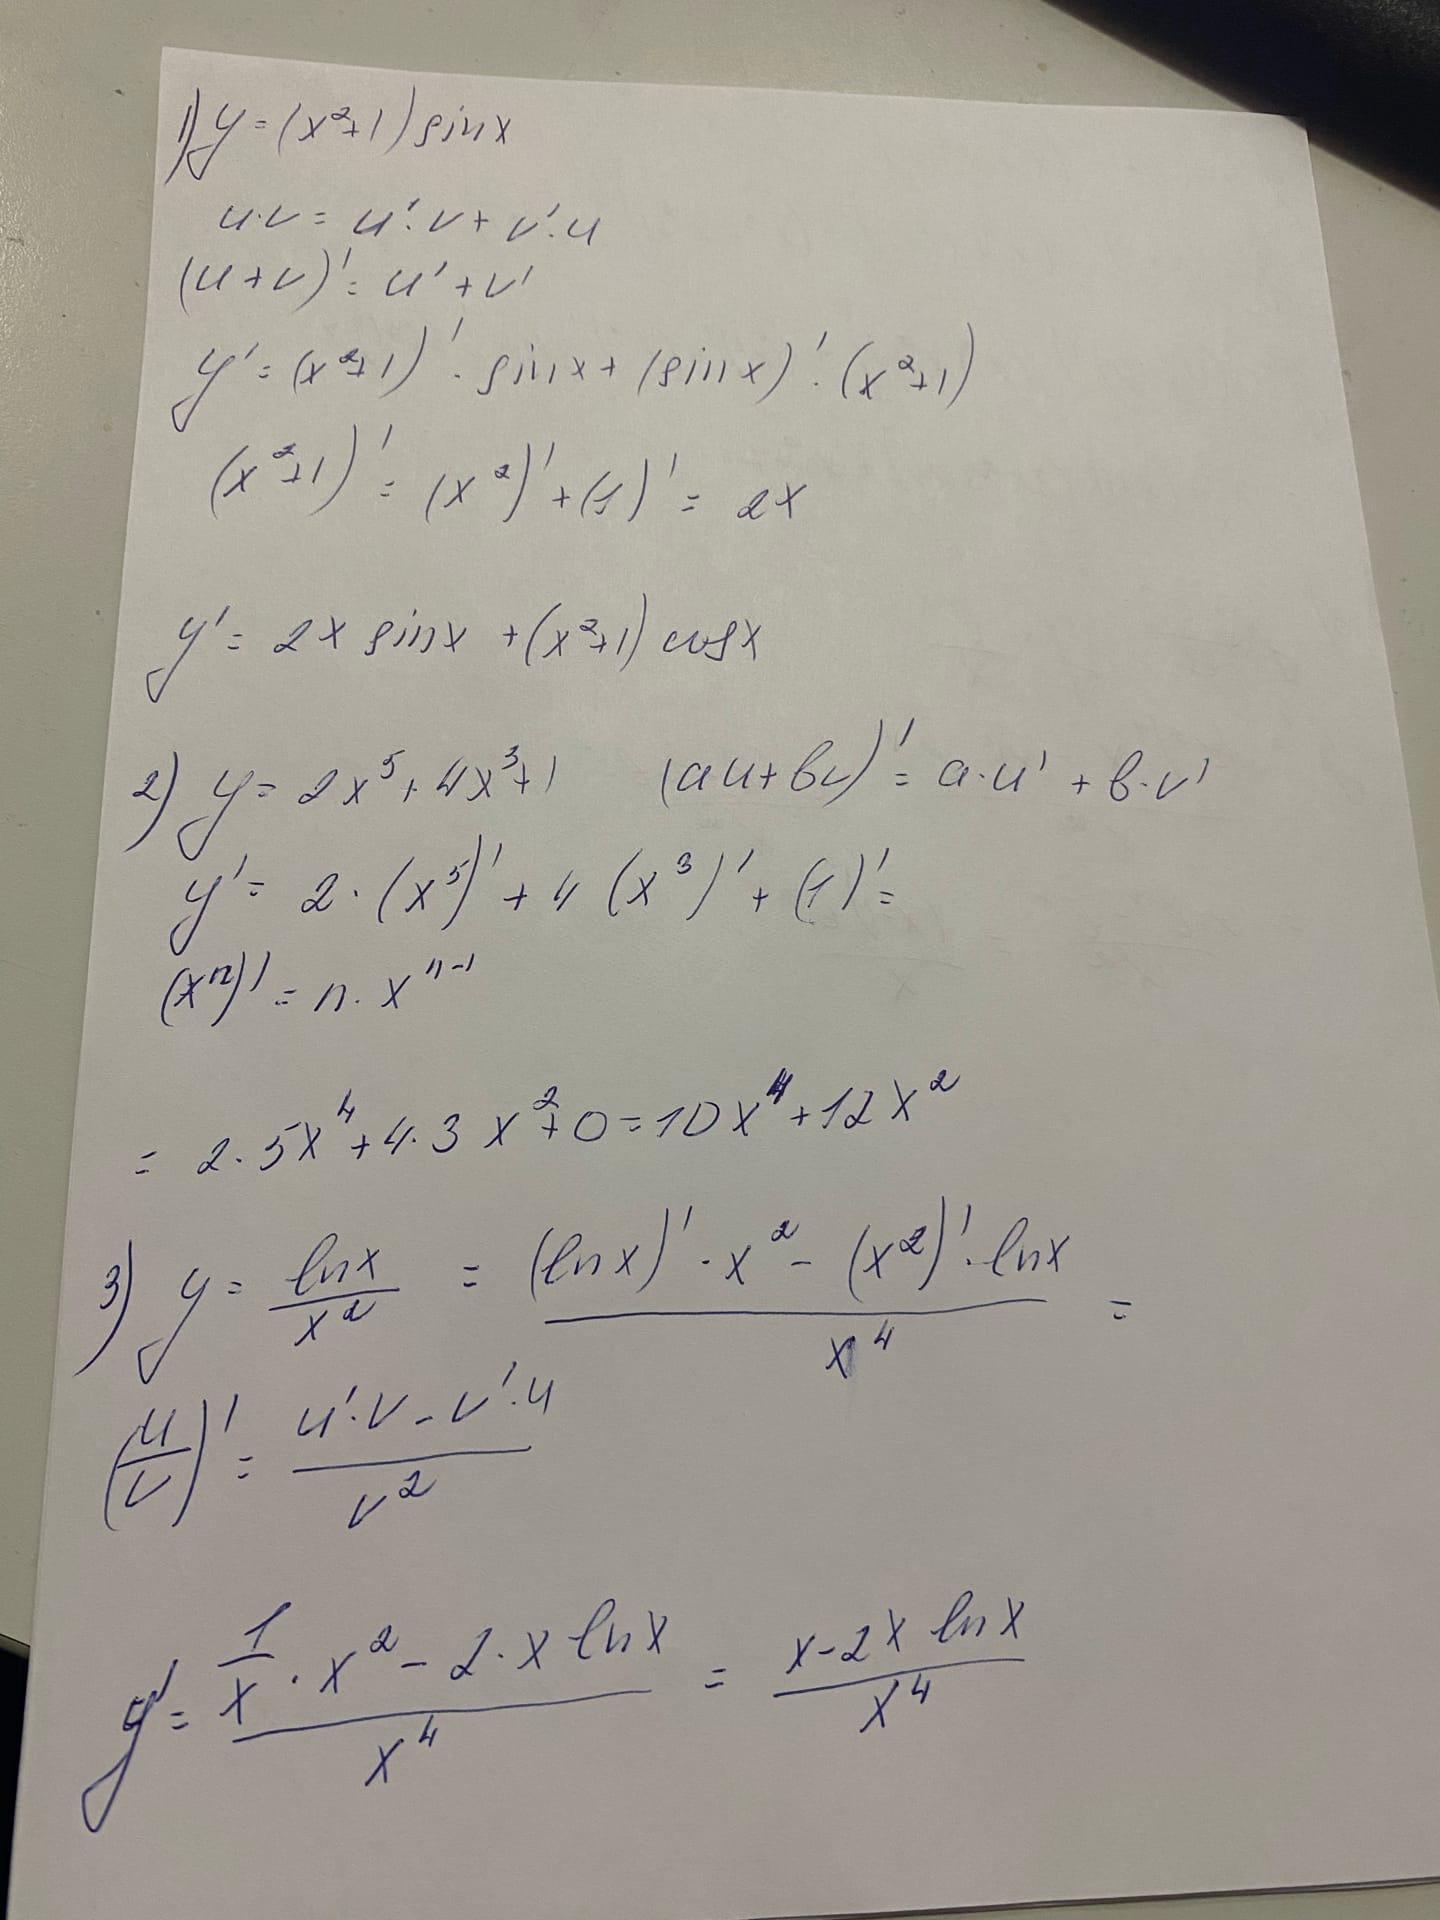 1) y = (x²+1) sinx
u·v = u'·v + v'·u
(u+v)' = u' + v'
y' = (x²+1)' · sinx + (sinx)' · (x²+1)
(x²+1)' = (x²)' + (1)' = 2x
y' = 2x sinx + (x²+1) cosx
2) y = 2x⁵ + 4x³ + 1 (au+bv)' = a·u' + b·v'
y' = 2·(x⁵)' + 4 (x³)' + (1)' =
(xⁿ)' = n·xⁿ⁻¹
= 2·5x⁴ + 4·3x² + 0 = 10x⁴ + 12x²
3) y = lnx/x² = ((lnx)'·x² - (x²)'·lnx)/x⁴ =
(u/v)' = (u'·v - v'·u)/v²
y' = (1/x · x² - 2·x lnx)/x⁴ = (x - 2x lnx)/x⁴